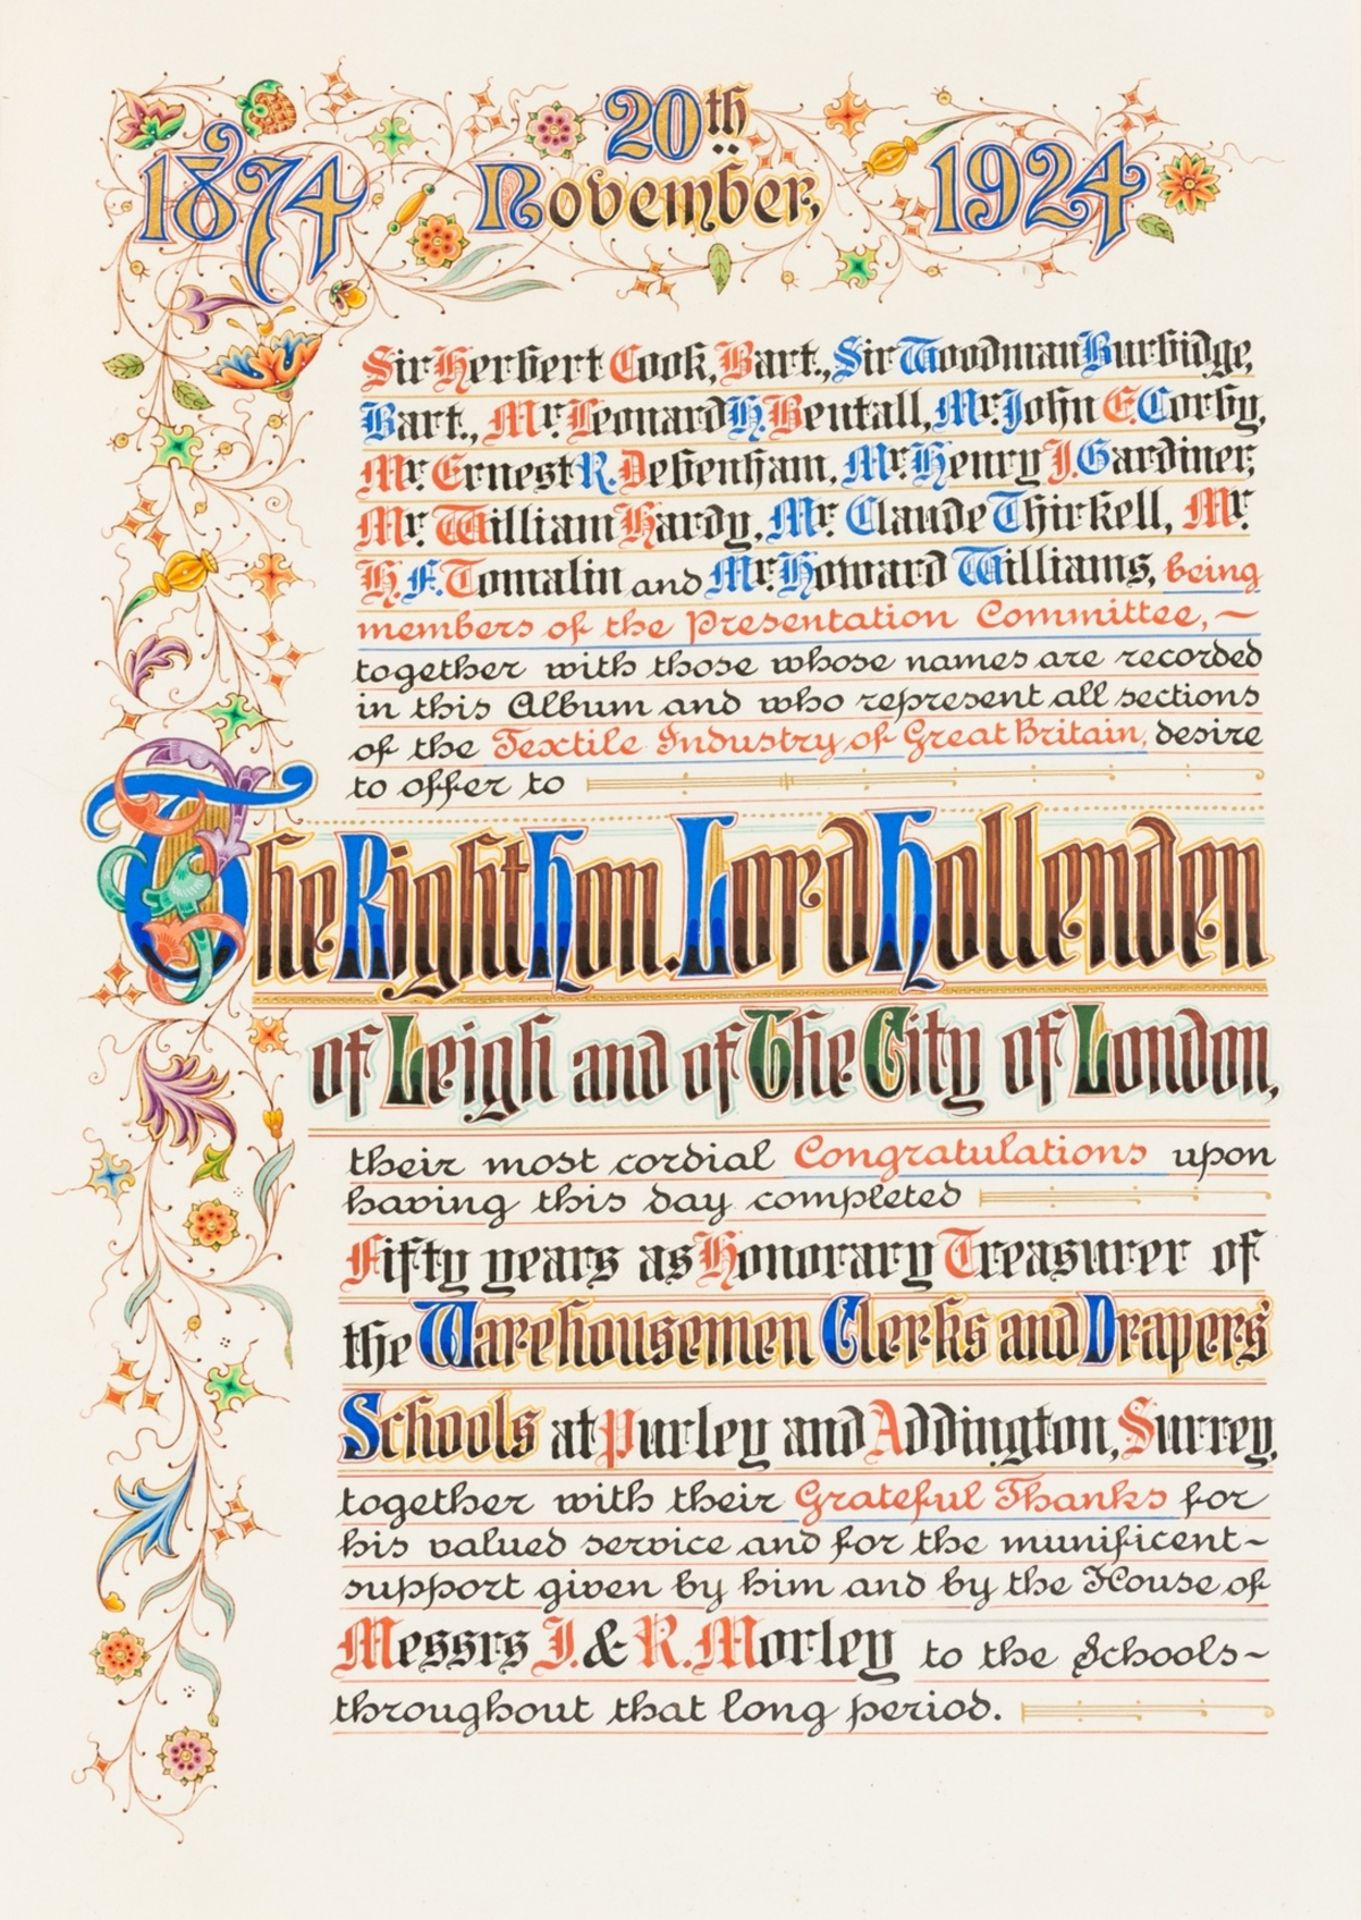 1874 20th November, 1924
Sir Herbert Cook, Bart., Sir Woodman Burbidge,
Bart., Mr. Leonard H. Bentall, Mr. John E. Corby,
Mr. Ernest R. Debenham, Mr. Henry J. Gardiner,
Mr. William Hardy, Mr. Claude Thirkell, Mr.
H. F. Tomalin and Mr. Howard Williams, being
members of the Presentation Committee, ~
together with those whose names are recorded
in this Album and who represent all sections
of the Textile Industry of Great Britain, desire
to offer to
The Right Hon. Lord Hollenden
of Leigh and of The City of London,
their most cordial Congratulations upon
having this day completed
Fifty years as Honorary Treasurer of
the Warehousemen Clerks and Drapers'
Schools at Purley and Addington, Surrey,
together with their Grateful Thanks for
his valued service and for the munificent ~
support given by him and by the House of
Messrs J. & R. Morley to the Schools ~
throughout that long period.